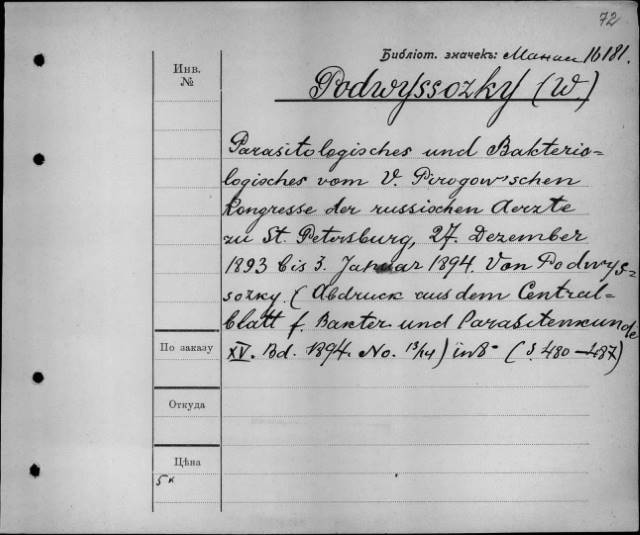 72
Библіот. значекъ: Манас 16181.
Инв.
№
Podwyssozky (W)
Parasitologisches und Bakterio=
logisches vom V. Pirogow'schen
Kongresse der russischen Aerzte
zu St. Petersburg, 27. Dezember
1893 bis 3. Januar 1894. Von Podwys=
sozky. (Abdruck aus dem Central=
blatt f. Bakter und Parasitenkunde
По заказу
XV. Bd. 1894. No. 13/14) in 8° (S. 480–487)
Откуда
Цѣна
5 к